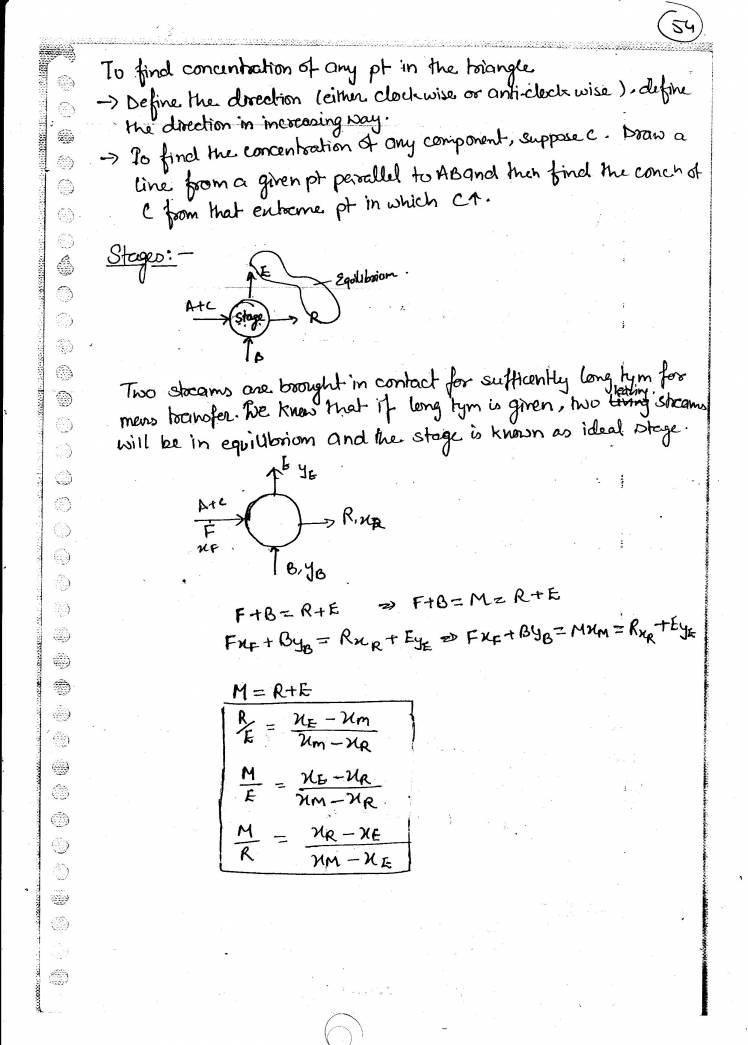 54
To find concentration of any pt in the triangle
→ Define the direction (either clockwise or anti-clockwise), define
the direction in increasing way.
→ To find the concentration of any component, suppose C. Draw a
line from a given pt parallel to AB and then find the concn of
C from that extreme pt in which C↑.
Stages:-
E
Equilibrium.
A+C
Stage
R
B
Two streams are brought in contact for sufficently long tym for
mass transfer. We know that if long tym is given, two leaving streams
will be in equilibrium and the stage is known as ideal stage.
E yE
A+C
F
xF
R, xR
B, yB
F+B = R+E ⇒ F+B = M = R+E
FxF + ByB = RxR + EyE ⇒ FxF + ByB = MxM = RxR + EyE
M = R+E
R/E = (xE - xm)/(xm - xR)
M/E = (xE - xR)/(xM - xR)
M/R = (xR - xE)/(xM - xE)